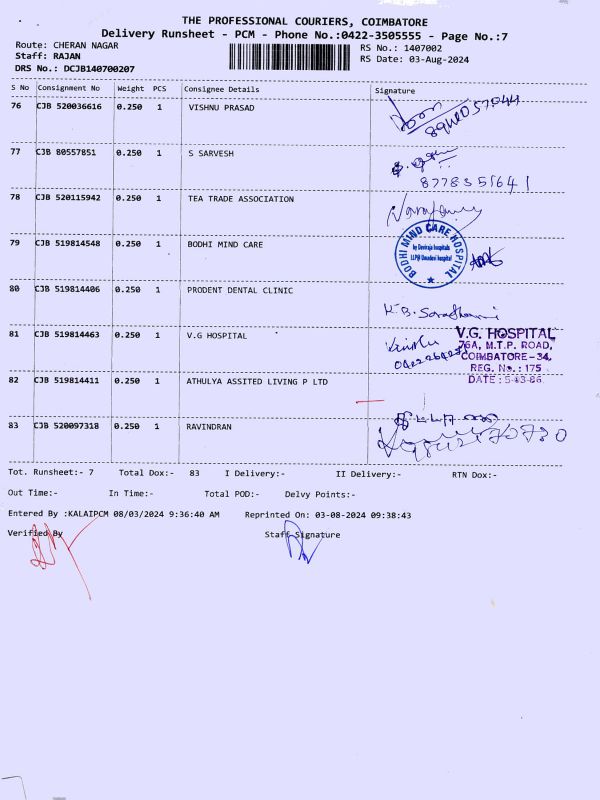 THE PROFESSIONAL COURIERS, COIMBATORE
Delivery Runsheet - PCM - Phone No.:0422-3505555 - Page No.:7
Route: CHERAN NAGAR
Staff: RAJAN
DRS No.: DCJB140700207
RS No.: 1407002
RS Date: 03-Aug-2024
S No Consignment No Weight PCS Consignee Details Signature
76 CJB 520036616 0.250 1 VISHNU PRASAD
77 CJB 80557851 0.250 1 S SARVESH
8778355641
78 CJB 520115942 0.250 1 TEA TRADE ASSOCIATION
79 CJB 519814548 0.250 1 BODHI MIND CARE
BODHI MIND CARE HOSPITAL
by Deviraja hospitals
LLP@ Umadevi hospital
80 CJB 519814406 0.250 1 PRODENT DENTAL CLINIC
81 CJB 519814463 0.250 1 V.G HOSPITAL
V.G. HOSPITAL
76A, M.T.P. ROAD,
COIMBATORE-34.
REG. No.: 175
DATE:
82 CJB 519814411 0.250 1 ATHULYA ASSITED LIVING P LTD
83 CJB 520097318 0.250 1 RAVINDRAN
Tot. Runsheet:- 7 Total Dox:- 83 I Delivery:- II Delivery:- RTN Dox:-
Out Time:- In Time:- Total POD:- Delvy Points:-
Entered By :KALAIPCM 08/03/2024 9:36:40 AM Reprinted On: 03-08-2024 09:38:43
Verified By Staff Signature